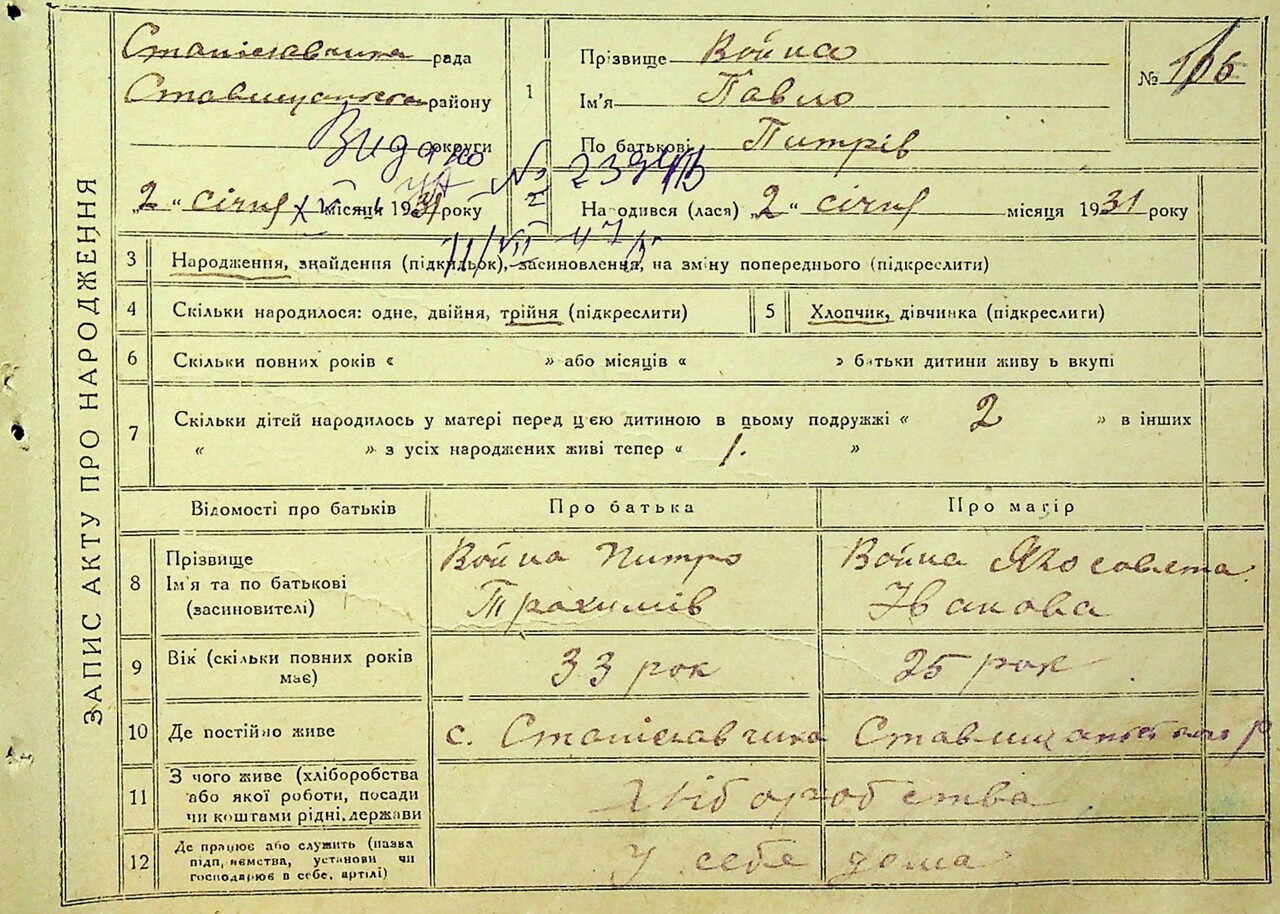 ЗАПИС АКТУ ПРО НАРОДЖЕННЯ
Станіславчика рада
Ставищанського району
округи
Видано
№ 239413
"2" січня місяця 1931 року
11/VII 47 р
1 Прізвище Война
Ім'я Павло
По батькові Питрів
№ 166
2 Народився (лася) "2" січня місяця 1931 року
3 Народження, знайдення (підкидьок), засиновлення, на зміну попереднього (підкреслити)
4 Скільки народилося: одне, двійня, трійня (підкреслити)
5 Хлопчик, дівчинка (підкреслити)
6 Скільки повних років « » або місяців « » батьки дитини живуть вкупі
7 Скільки дітей народилось у матері перед цією дитиною в цьому подружжі « 2 » в інших
« » з усіх народжених живі тепер « 1. »
Відомості про батьків Про батька Про матір
8 Прізвище
Ім'я та по батькові
(засиновителі)
Война Питро
Трохимів
Война Якосовлета
Іванова
9 Вік (скільки повних років
має)
33 рок 25 рок
10 Де постійно живе с. Станіславчика Ставищанського р
11 З чого живе (хліборобства
або якої роботи, посади
чи коштами рідні, держави
хліборобства
12 Де працює або служить (назва
підприємства, установи чи
господарює в себе, артілі)
У себе дома